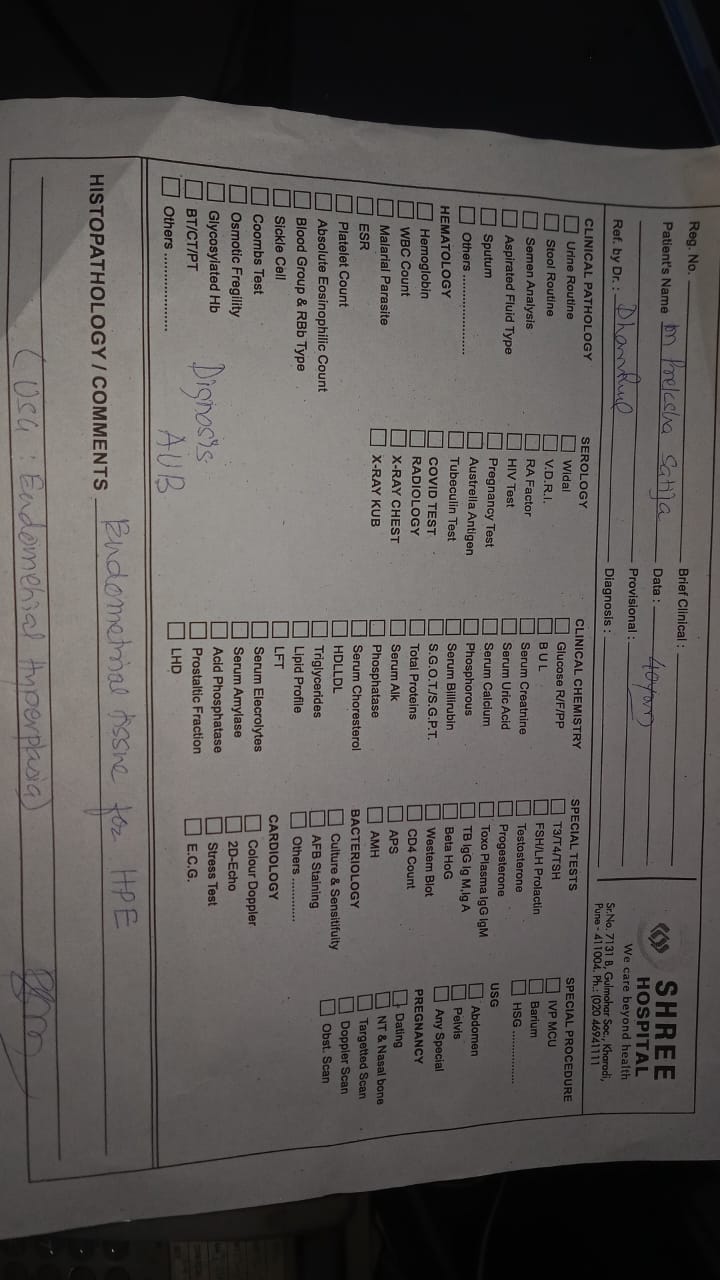 Reg. No.
Patient's Name
Ref. by Dr. :
Brief Clinical :
Data : 40yars
Provisional :
Diagnosis :
SHREE
HOSPITAL
We care beyond health
Sr.No. 7131 B, Gulmohar Soc., Kharadi,
Pune - 411004. Ph.: (020 46941111
CLINICAL PATHOLOGY
Urine Routine
Stool Routine
Semen Analysis
Aspirated Fluid Type
Sputum
Others ....................
HEMATOLOGY
Hemoglobin
WBC Count
Malarial Parasite
ESR
Platelet Count
Absolute Eosinophilic Count
Blood Group & RBb Type
Sickle Cell
Coombs Test
Osmotic Fregility
Glycosylated Hb
BT/CT/PT
Others ..................
SEROLOGY
Widal
V.D.R.I.
RA Factor
HIV Test
Pregnancy Test
Austrella Antigen
Tubeculin Test
COVID TEST
RADIOLOGY
X-RAY CHEST
X-RAY KUB
Dignosis
AUB
CLINICAL CHEMISTRY
Glucose R/F/PP
B U L
Serum Creatnine
Serum Uric Acid
Serum Calcium
Phosphorous
Serum Billirubin
S.G.O.T./S.G.P.T.
Total Proteins
Serum Alk
Phosphatase
Serum Choresterol
HDLLDL
Triglycerides
Lipid Profile
LFT
Serum Elecrolytes
Serum Amylase
Acid Phosphatase
Prostaltic Fraction
LHD
SPECIAL TESTS
T3/T4/TSH
FSH/LH Prolactin
Testosterone
Progesterone
Toxo Plasma IgG IgM
TB IgG Ig M,Ig A
Beta HoG
Western Blot
CD4 Count
APS
AMH
BACTERIOLOGY
Culture & Sensitifuity
AFB Staining
Others ............
CARDIOLOGY
Colour Doppler
2D-Echo
Stress Test
E.C.G.
SPECIAL PROCEDURE
IVP MCU
Barium
HSG ...............
USG
Abdomen
Pelvis
Any Special
PREGNANCY
Dating
NT & Nasal bone
Targetted Scan
Doppler Scan
Obst. Scan
HISTOPATHOLOGY / COMMENTS Endometrial tissue for HPE
(USG : Endometrial hyperplasia)